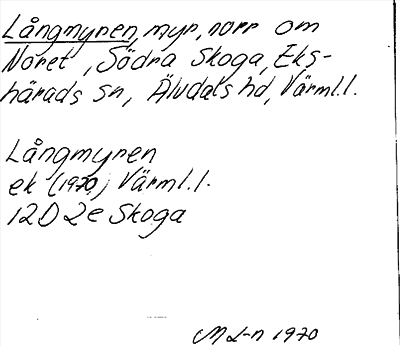 Långmyren, myr, norr om
Noret, Södra Skoga, Eks-
härads sn, Älvdals hd, Värml.l.
Långmyren
ek (1970) Värml.l.
12D 2e Skoga
M L-n 1970